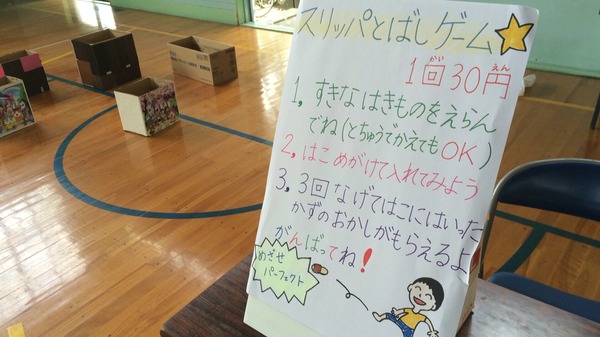 スリッパとばしゲーム
1回30円
かい
えん
1、すきなはきものをえらん
でね(とちゅうでかえてもOK)
2、はこめがけて入れてみよう
3、3回なげてはこにはいった
かずのおかしがもらえるよ
がんばってね!
めざせ
パーフェクト